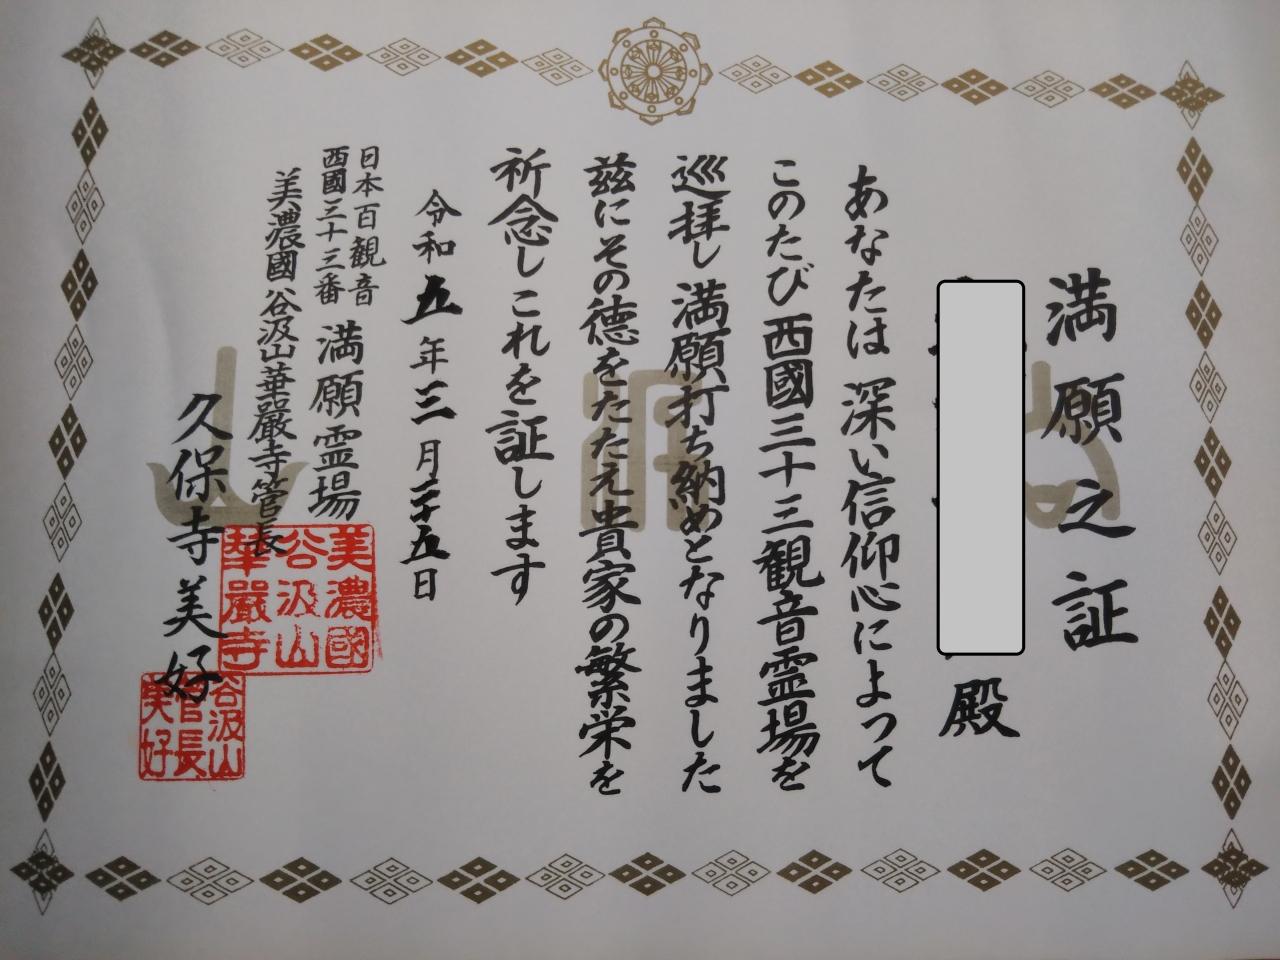 満願之証
殿
あなたは深い信仰心によって
このたび西國三十三観音霊場を
巡拝し満願打ち納めとなりました
茲にその徳をたたえ貴家の繁栄を
祈念しこれを証します
令和五年三月二十五日
日本百観音
西國三十三番
満願霊場
美濃國谷汲山華厳寺管長
久保寺美好
美濃國
谷汲山
華嚴寺
谷汲山
管長
美好